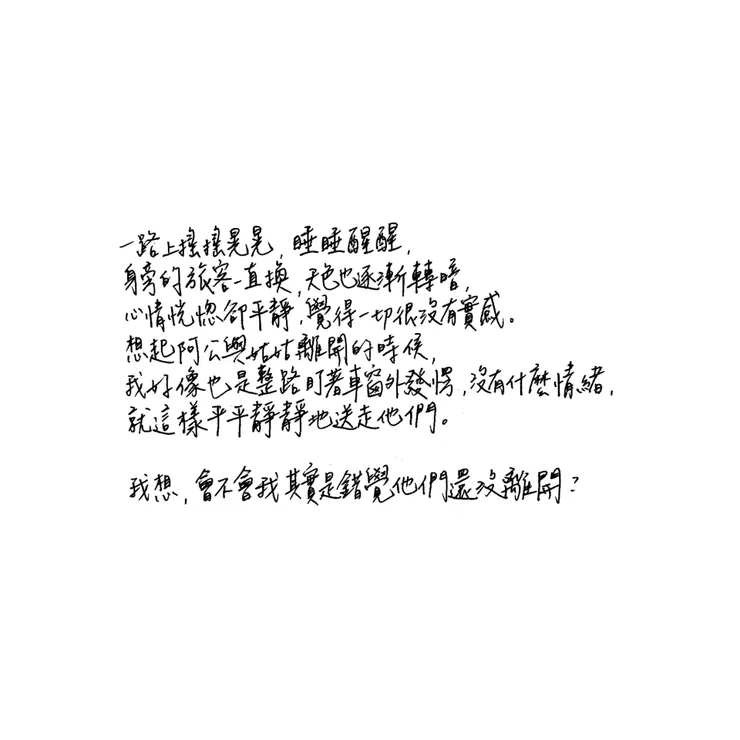 一路上搖搖晃晃，睡睡醒醒，
身旁的旅客一直換，天色也逐漸轉暗，
心情恍惚卻平靜，覺得一切很沒有實感。
想起阿公與姑姑離開的時候，
我好像也是整路盯著車窗外發愣，沒有什麼情緒，
就這樣平平靜靜地送走他們。
我想，會不會我其實是錯覺他們還沒離開？